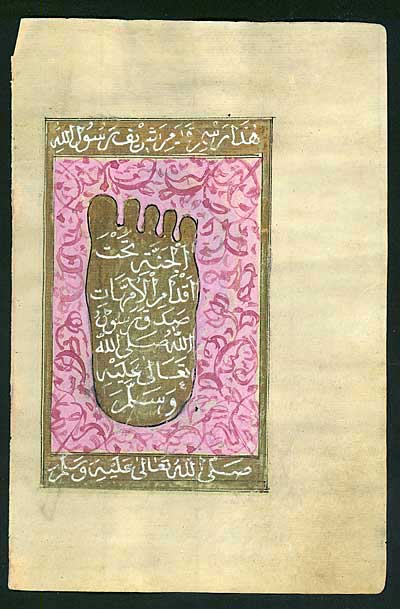 هذا رسم قدم شريف رسول الله
الجنة تحت
اقدام الامهات
صدق رسول
الله صلى الله
تعالى عليه
وسلم
صلى الله تعالى عليه وسلم